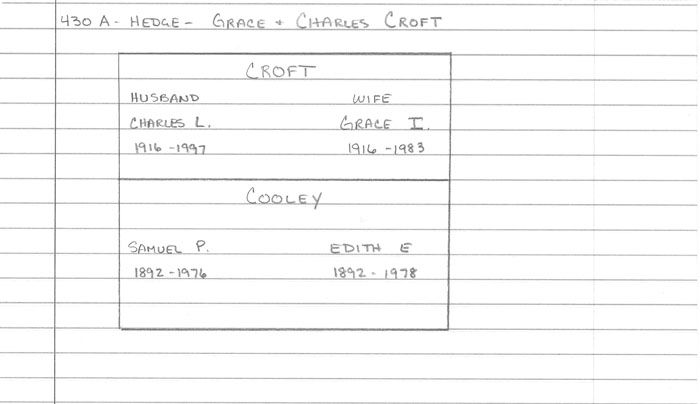 430 A - HEDGE - GRACE + CHARLES CROFT
CROFT
HUSBAND WIFE
CHARLES L. GRACE I.
1916 - 1997 1916 - 1983
COOLEY
SAMUEL P. EDITH E
1892 - 1976 1892 - 1978